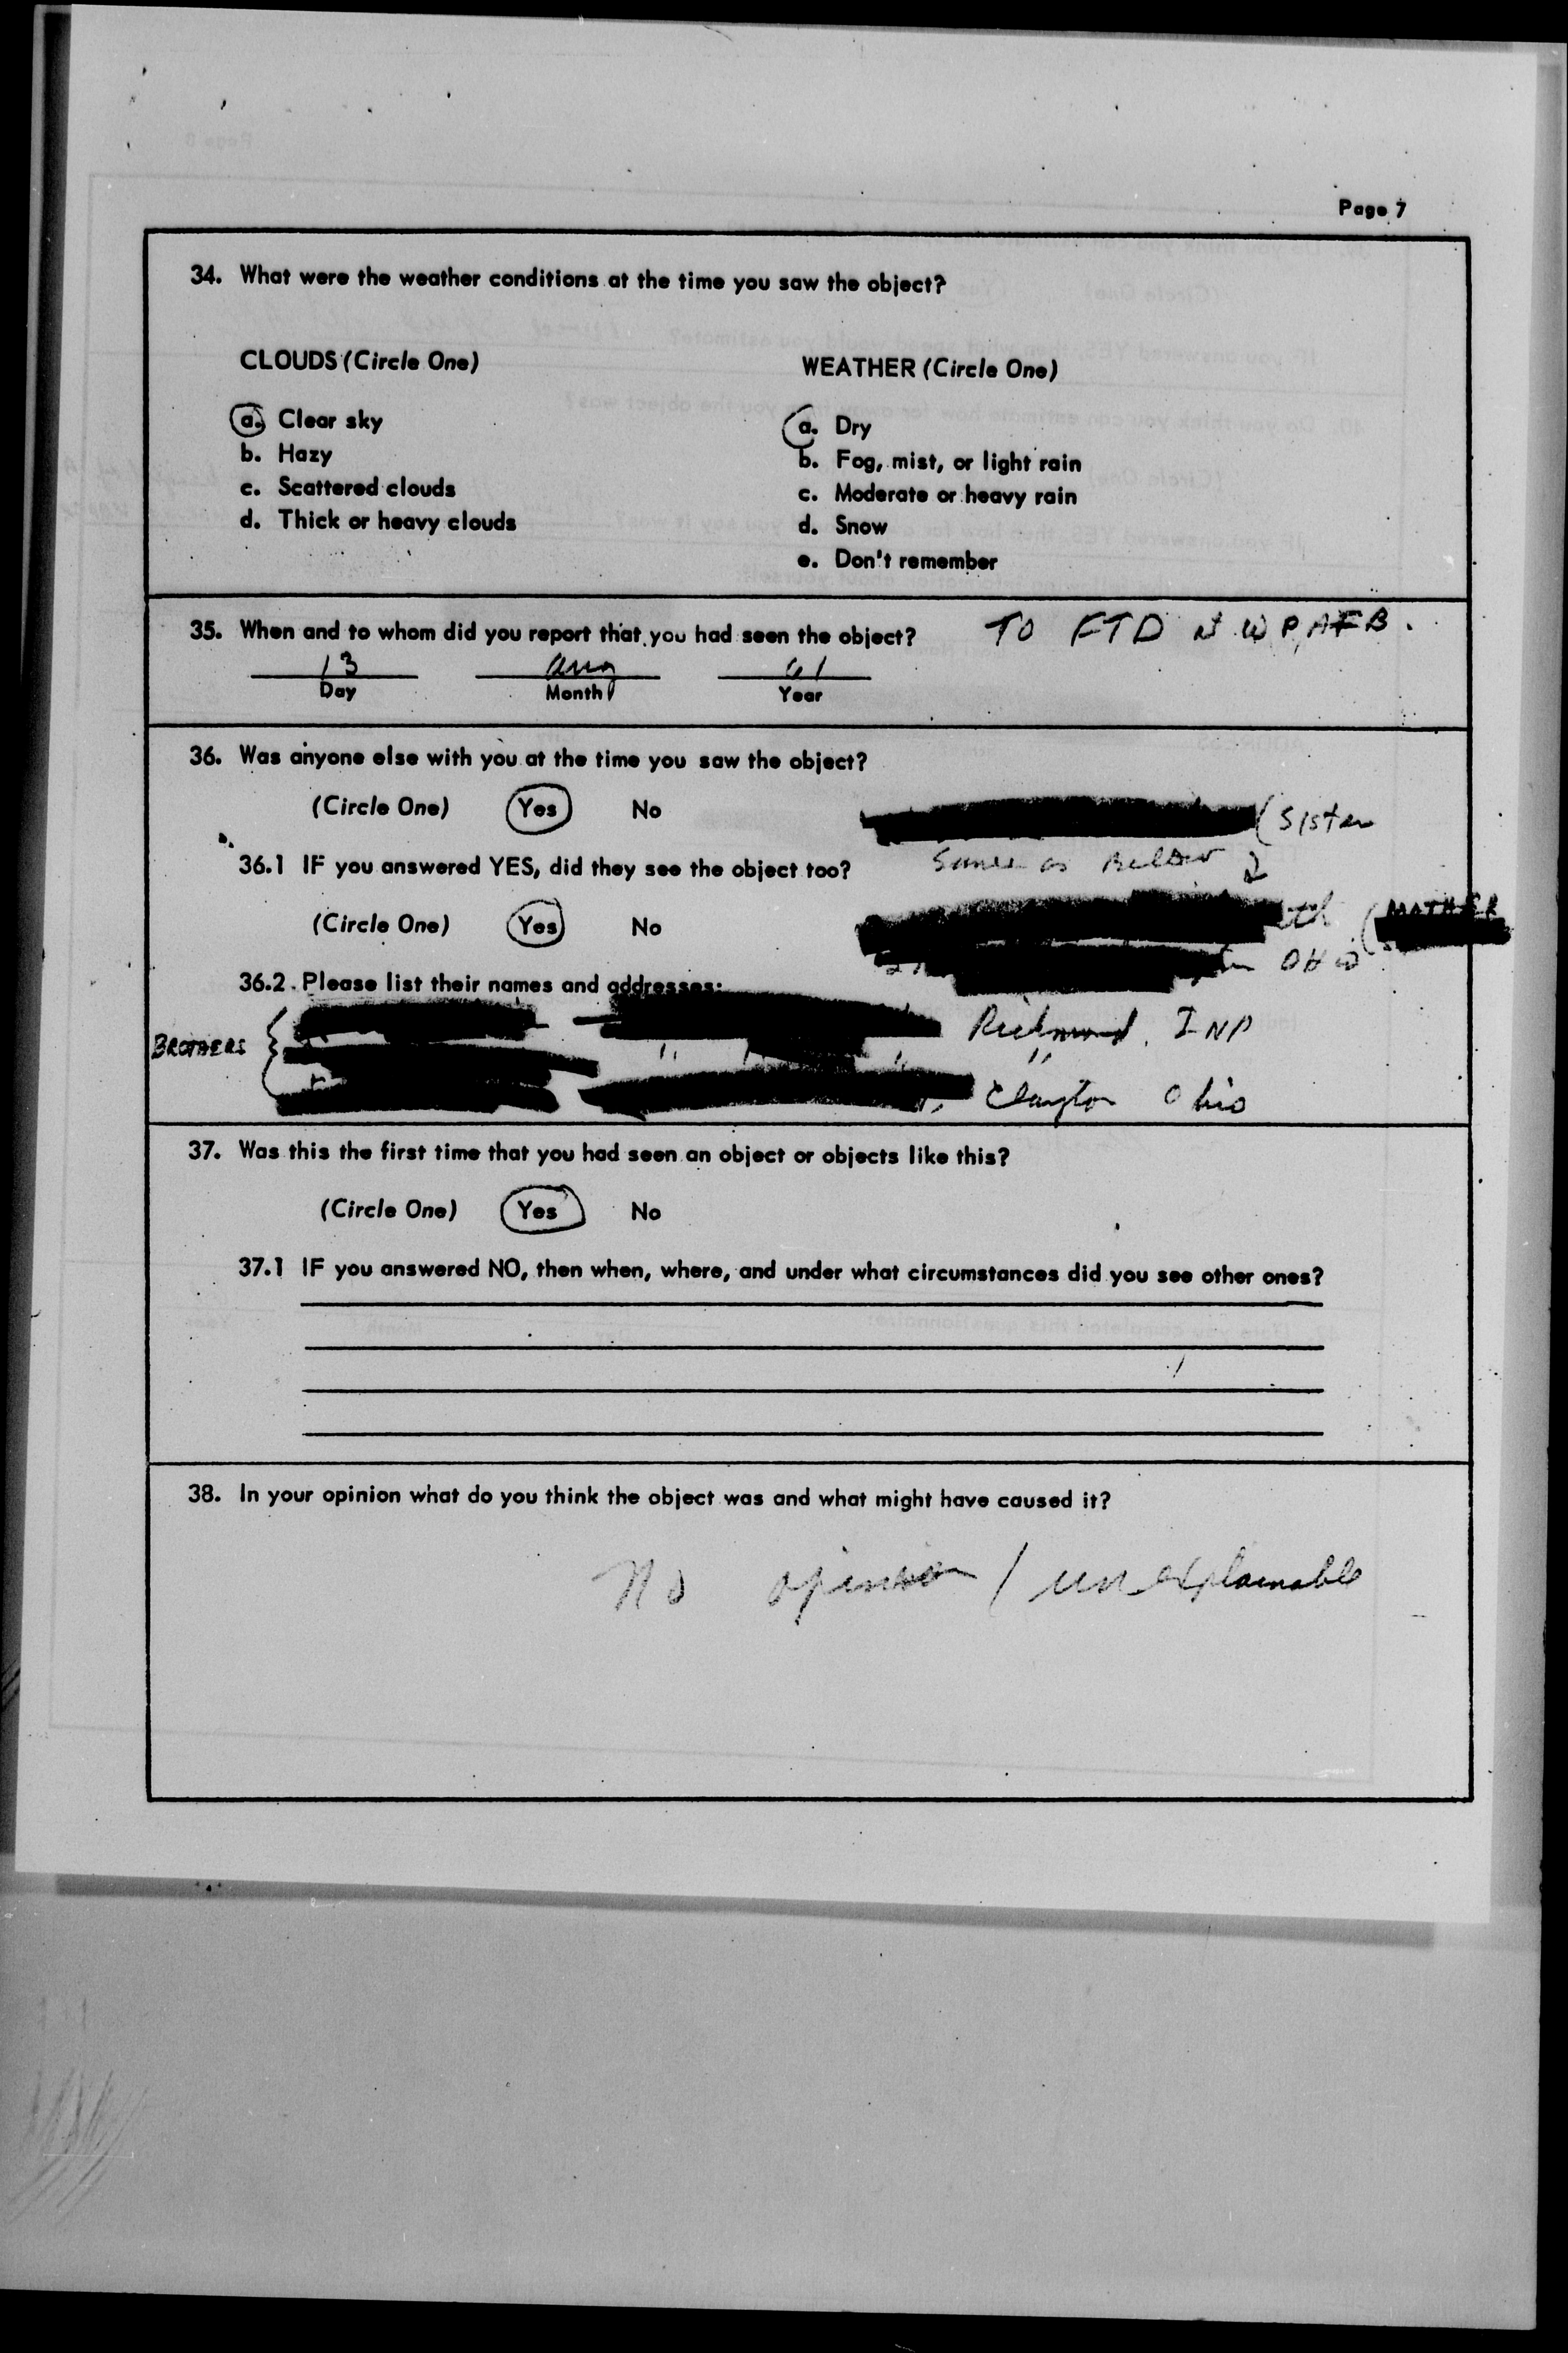 Page 7
34. What were the weather conditions at the time you saw the object?
CLOUDS (Circle One)
a. Clear sky
b. Hazy
c. Scattered clouds
d. Thick or heavy clouds
WEATHER (Circle One)
a. Dry
b. Fog, mist, or light rain
c. Moderate or heavy rain
d. Snow
e. Don't remember
35. When and to whom did you report that you had seen the object? TO FTD WPAFB.
13 Aug 61
Day Month Year
36. Was anyone else with you at the time you saw the object?
(Circle One) Yes No
(Sister
36.1 IF you answered YES, did they see the object too?
Same as Below
(Circle One) Yes No
(MOTHER
Ohio
36.2 Please list their names and addresses:
BROTHERS
Richmond, IND
" " " "
Clayton Ohio
37. Was this the first time that you had seen an object or objects like this?
(Circle One) Yes No
37.1 IF you answered NO, then when, where, and under what circumstances did you see other ones?
38. In your opinion what do you think the object was and what might have caused it?
No opinion / unexplainable